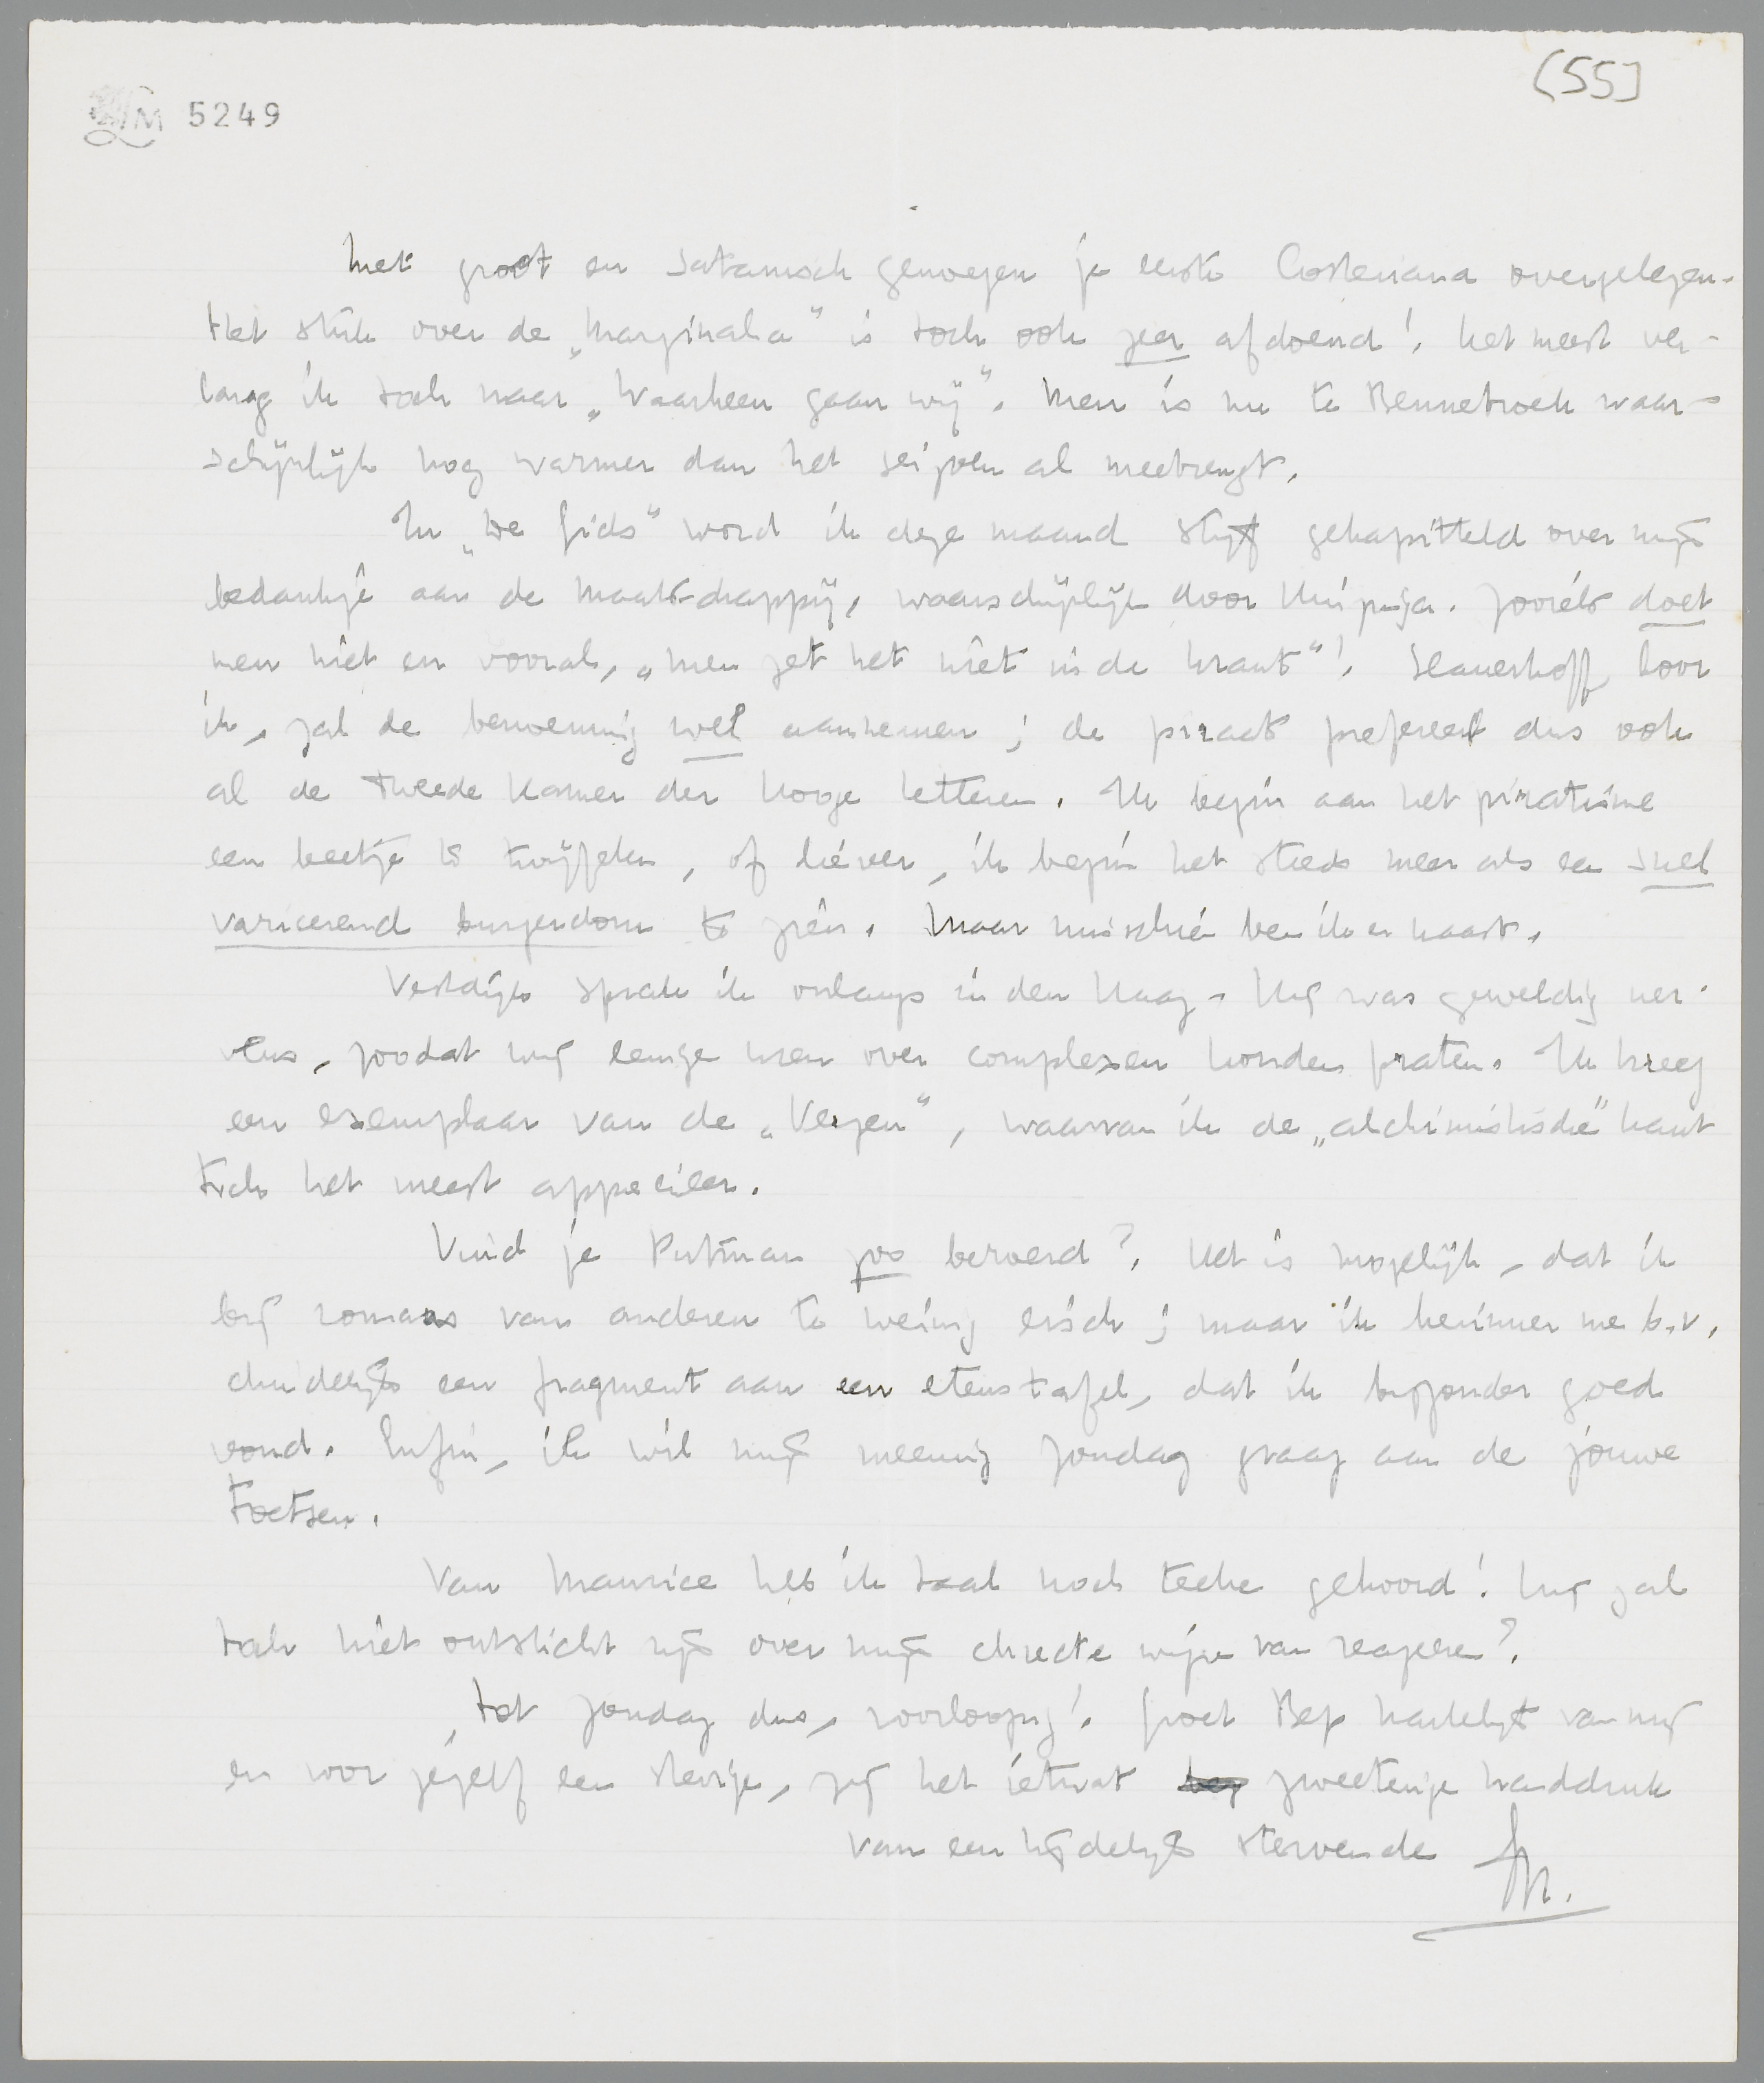 (55]
LM 5249
Met groot en satanisch genoegen je eerste Costeriana overgelezen.
Het stuk over de „Marginalia” is toch ook zeer afdoend! Het meest ver-
lang ik toch naar „Waarheen gaan wij”. Men is nu te Bennebroek waar-
schijnlijk nog warmer dan het seizoen al meebrengt.
In „De Gids” word ik deze maand stijf gekapitteld over mijn
bedankje aan de Maatschappij, waarschijnlijk door Huizinga. Zooiets doet
men niet en vooral, „men zet het niet in de krant”! Slauerhoff, hoor
ik, zal de benoeming wel aannemen; de piraat prefereert dus ook
al de Tweede Kamer der hooge letteren. Ik begin aan het piratisme
een beetje te twijfelen, of liever, ik begin het steeds meer als een snel
varieerend burgerdom te zien. Maar misschien ben ik er naast.
Vestdijk sprak ik onlangs in den Haag. Hij was geweldig ner-
veus, zoodat wij eenige uren over complexen konden praten. Ik kreeg
een exemplaar van de „Verzen”, waarvan ik de „alchimistische” kant
toch het meest apprecieer.
Vind je Putman zoo beroerd? Het is mogelijk, dat ik
bij romans van anderen te weinig eisch; maar ik herinner me b.v.
duidelijk een fragment aan een etenstafel, dat ik bijzonder goed
vond. Enfin, ik wil mijn meening Zondag graag aan de jouwe
toetsen.
Van Maurice heb ik taal noch teeken gehoord! Hij zal
toch niet ontsticht zijn over mijn directe wijze van reageeren?
Tot Zondag dus, voorloopig! Groet Bep hartelijk van mij
en voor jezelf een stevige, zij het ietwat zweeterige handdruk
van een tijdelijk stervende
M.